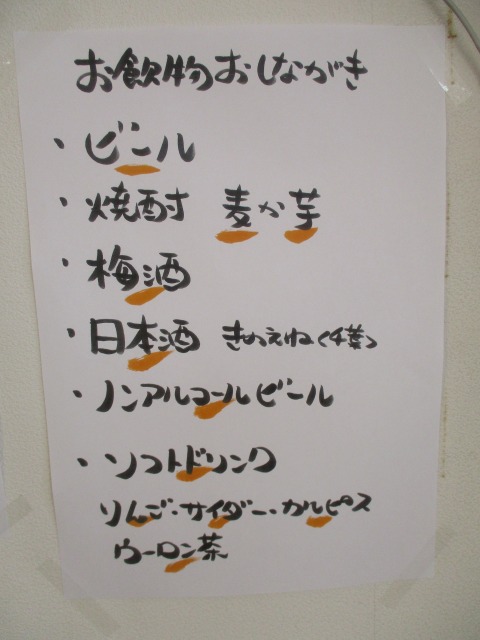 お飲物おしながき
・ビール
・焼酎 麦か芋
・梅酒
・日本酒 きのえね<千葉>
・ノンアルコールビール
・ソフトドリンク
りんご・サイダー・カルピス
ウーロン茶